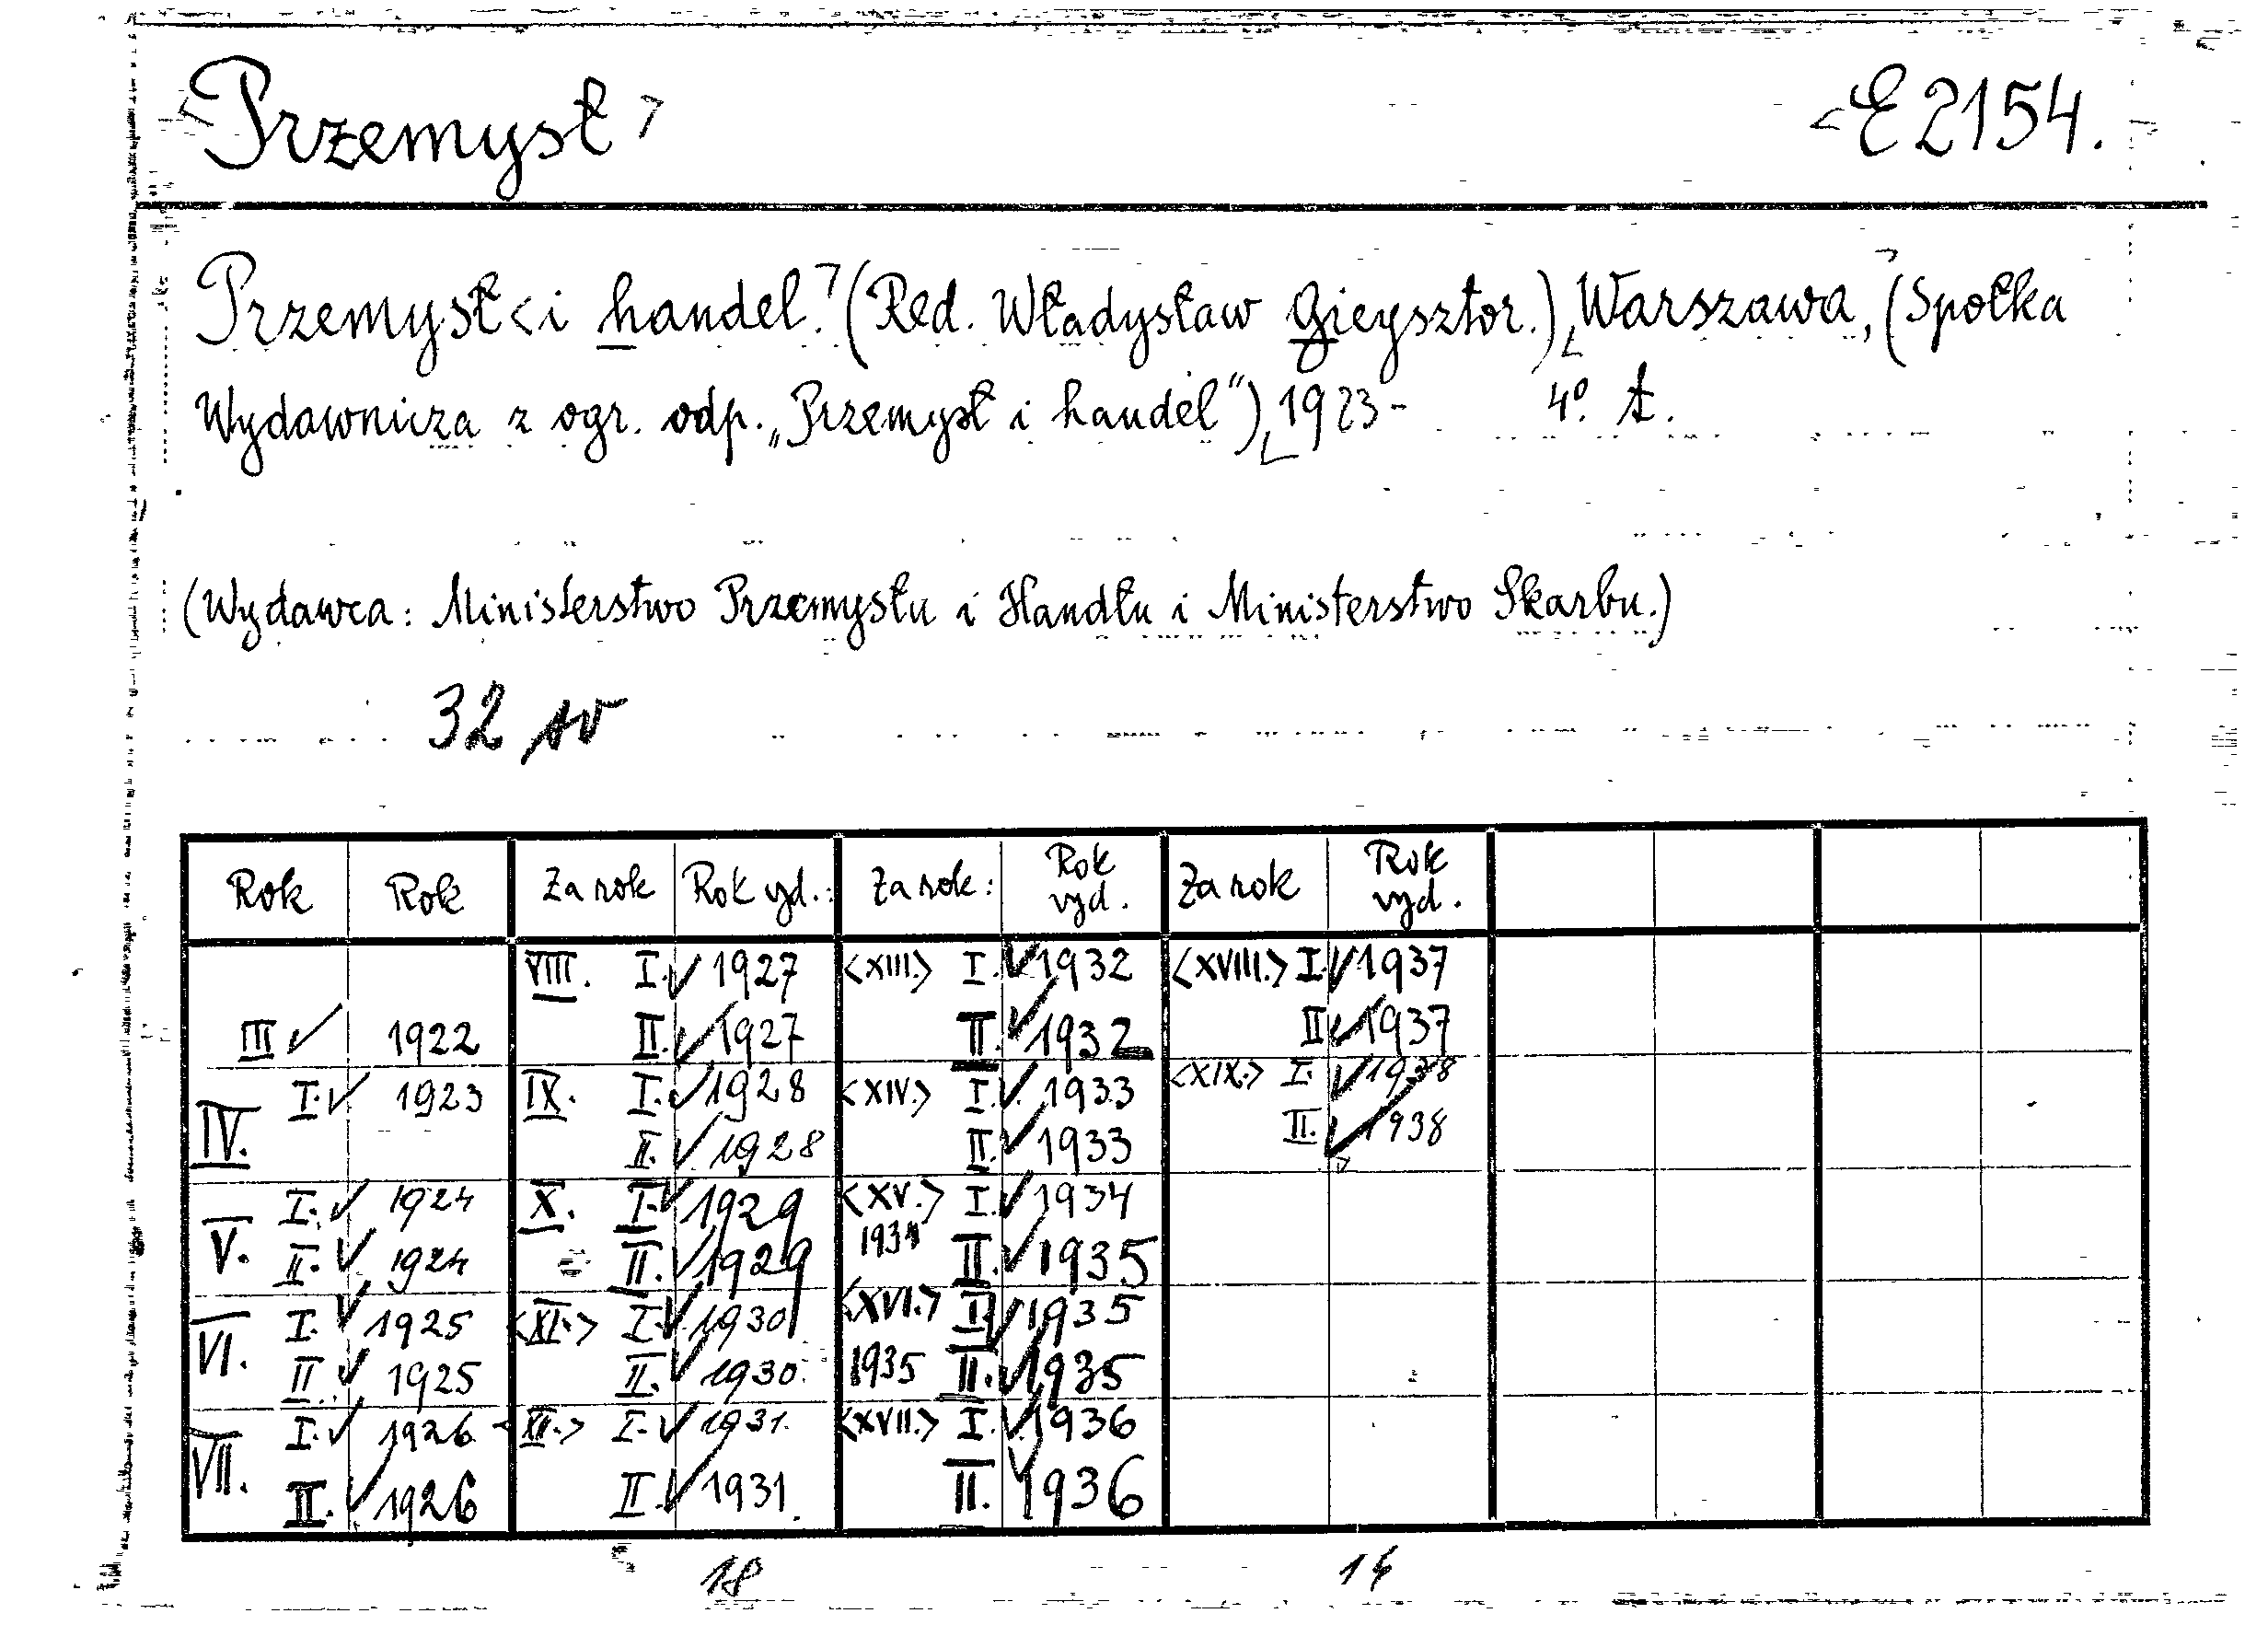 Przemysł E 2154.
Przemysł <i handel. (Red. Władysław Gieysztor.) Warszawa, (Spółka
Wydawnicza z ogr. odp. „Przemysł i handel") 1923- 4º.
(Wydawca: Ministerstwo Przemysłu i Handlu i Ministerstwo Skarbu.)
32
Rok Rok Za rok Rok wyd.: Za rok: Rok wyd. Za rok Rok wyd.
VIII. I. ✓ 1927 <XIII.> I. ✓ 1932 <XVIII.> I. ✓ 1937
III ✓ 1922 II. ✓ 1927 II. ✓ 1932 II ✓ 1937
IV. I. ✓ 1923 IX. I. ✓ 1928 <XIV.> I. ✓ 1933 <XIX.> I. ✓ 1938
II. ✓ 1928 II. ✓ 1933 II. ✓ 1938
V. I. ✓ 1924 X. I. ✓ 1929 <XV.> I. ✓ 1934
II. ✓ 1924 II. ✓ 1929 1934 II. ✓ 1935
VI. I. ✓ 1925 <XI.> I. ✓ 1930 <XVI.> I. ✓ 1935
II ✓ 1925 II. ✓ 1930. 1935 II. ✓ 1935
VII. I. ✓ 1926 <XII.> I. ✓ 1931. <XVII.> I. ✓ 1936
II. ✓ 1926 II. ✓ 1931. II. ✓ 1936
18 14